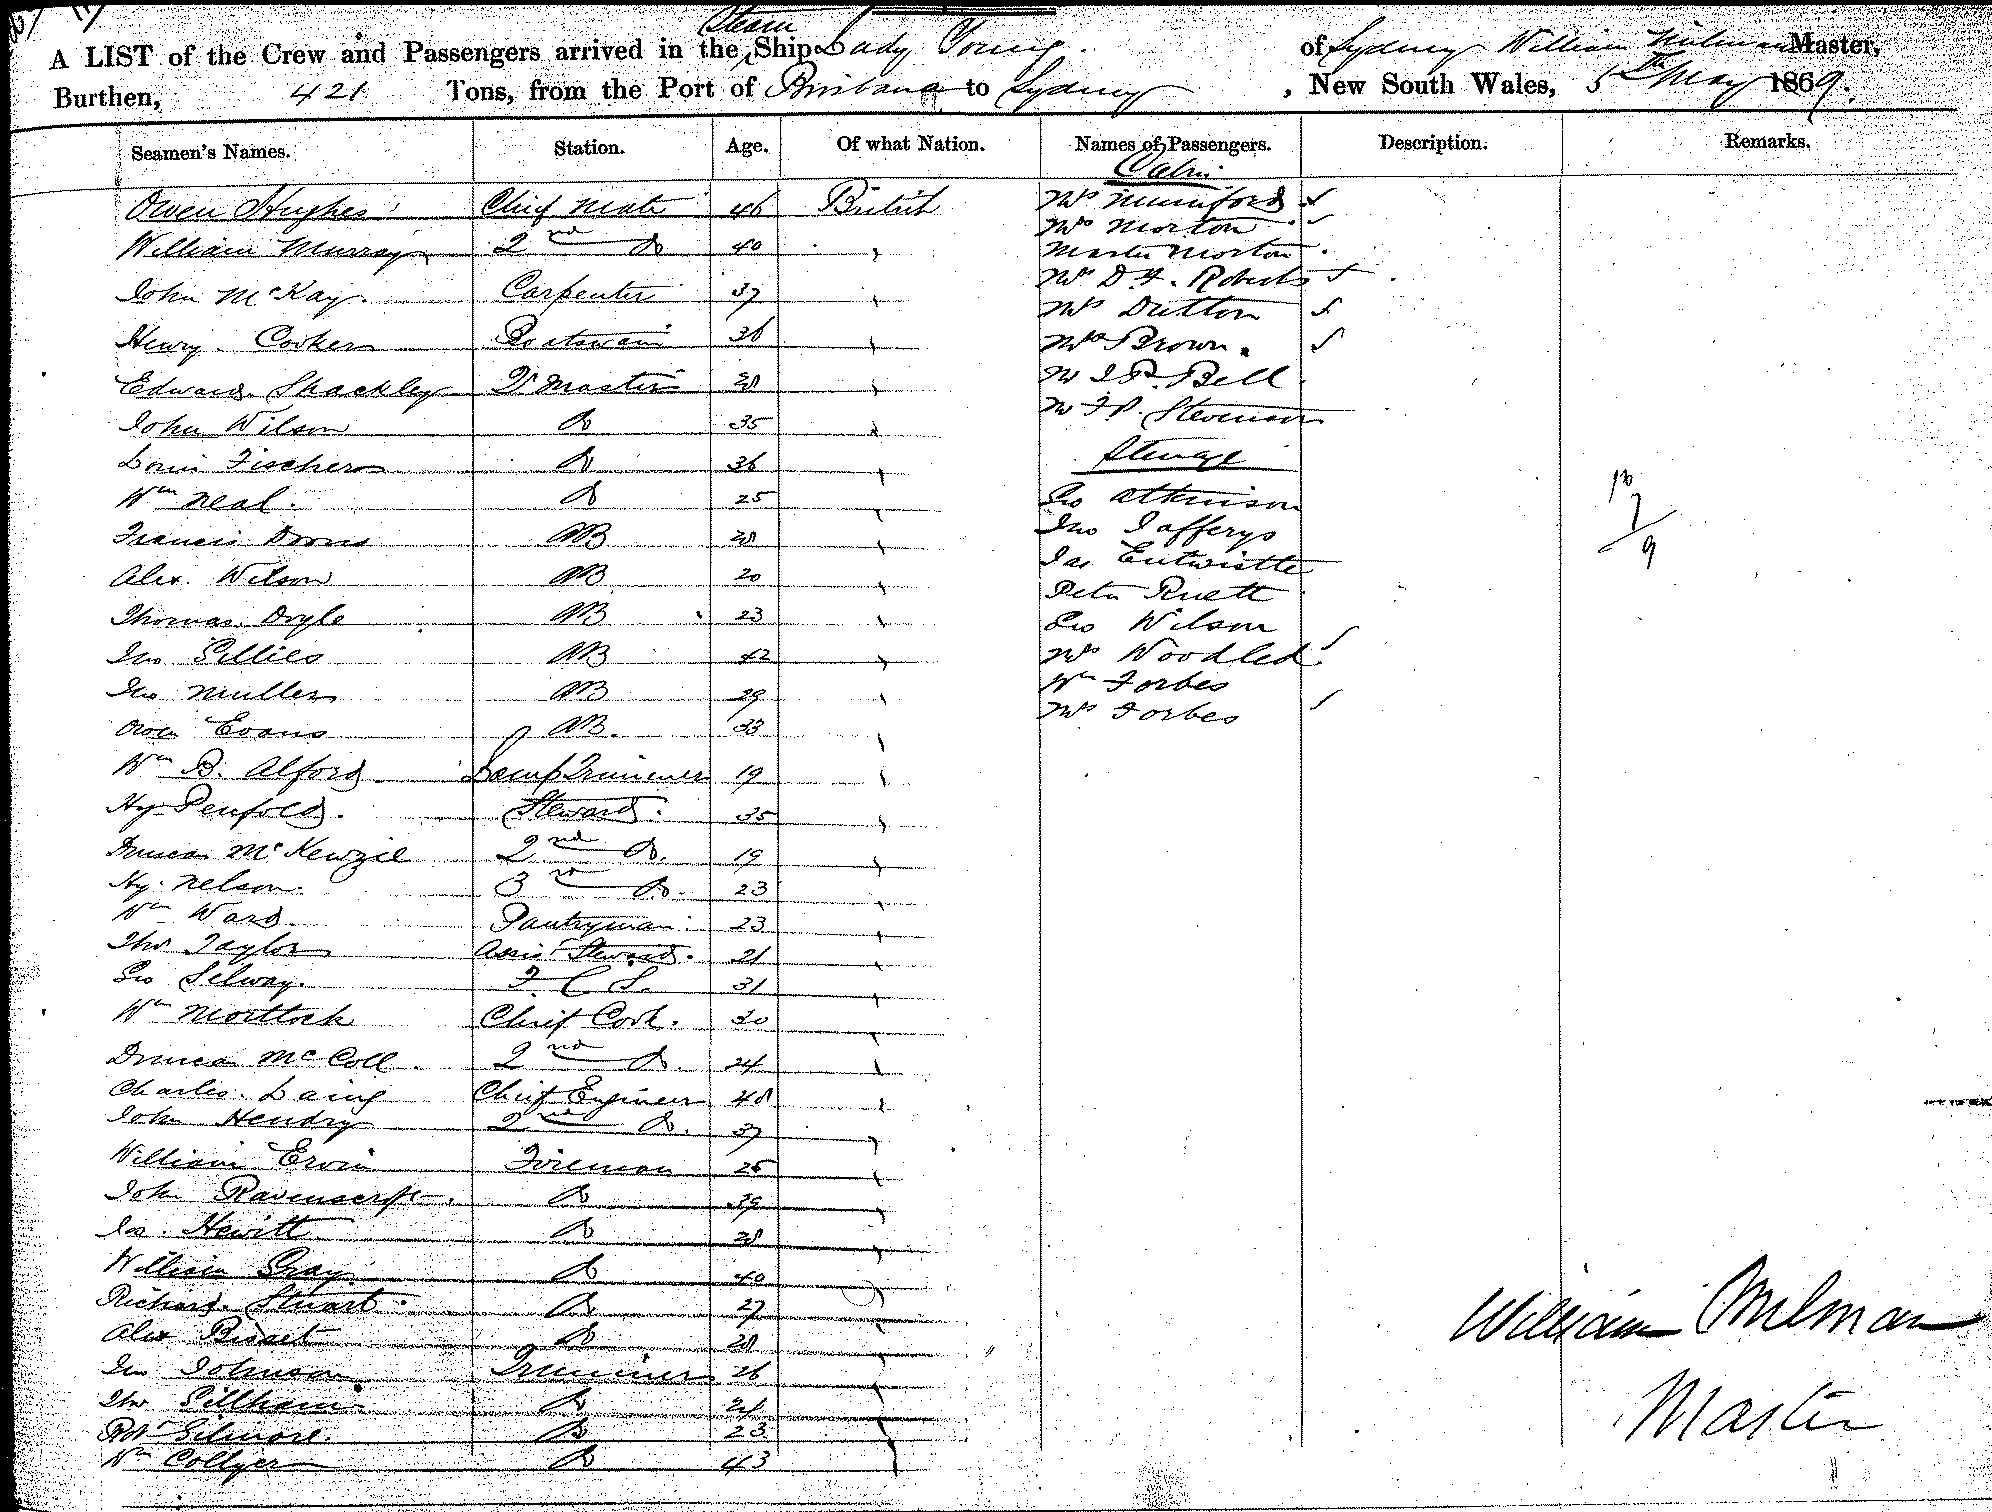 A LIST of the Crew and Passengers arrived in the Steam Ship Lady Young. of Sydney William Milman Master,
Burthen, 421 Tons, from the Port of Brisbane to Sydney, New South Wales, 5th May 1869.
Seamen's Names. Station. Age. Of what Nation. Names of Passengers. Description. Remarks.
Cabin
Owen Hughes Chief Mate 46 British Mrs Mumford
Mrs Morton
William Murray 2nd Do 40 " Master Morton
John McKay. Carpenter 37 " Mr D F. Roberts
Mrs Dutton
Henry. Cooker Boatswain 36 " Mrs Brown.
Edward. Shackley Qr Master 28 " Mr J P. Bell
John Wilson Do 35 " Mr J P. Stevenson
Louis Fischer Do 36 " Steerage
Wm Neal. Do 25 " Geo Atkinson
Francis AB 28 " Jno Jafferys
Alex. Wilson AB 20 " Jas Entwistle
Peter Ruett
Thomas. Doyle AB 23 " Geo Wilson
Jno Gillies AB 42 " Mrs Woodled
Jno Muller AB 29 " Wm Forbes
Owen Evans AB. 33 " Mrs Forbes
Wm B. Alford Lamp Trimmer 19 "
Hy Penfold. Steward. 35 "
Duncan McKenzie 2nd Do. 19 "
Hy. Nelson. 3rd Do. 23 "
Wm Ward. Pantryman. 23 "
Thos Taylor Assis Steward. 21 "
Geo Selway. F. C S. 31 "
Wm Mortlock Chief Cook. 30 "
Duncan McColl. 2nd Do. 24 "
Charles. Laing Chief Engineer 48 "
John Hendry 2nd Do. 37 "
William Ervin Fireman 25 "
John Ravenscroft. Do 39 "
Jas. Hewitt Do 28 "
William Gray Do 40 "
Richard. Stuart. Do 27 "
Alex Bisset Do 28 "
Jno Johnson Trimmer 26 "
Thos Gillham Do 21 "
Robt Gilmore. Do 23 "
Wm Collyer Do 43 "
William Milman
Master